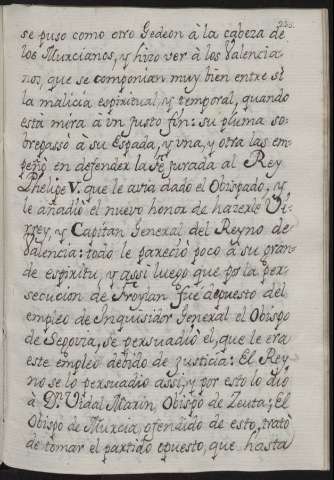 238.
se puso como otro Gedeon à la cabeza de
los Murcianos, y hizo ver à los Valencia
nos, que se componian muy bien entre sí
la malicia espiritual, y temporal, quando
está mira à un justo fin: su pluma so-
brepasso à su Espada, y una, y otra las em-
peñò en defender la Fè jurada al Rey
Phelipe V. que le avia dado el Obispado, y
le añadio el nuevo honor de hazerle Vi-
rrey, y Capitan General del Reyno de
Valencia: todo le pareciò poco à su gran-
de espiritu, y assi luego que por la per-
secucion de Froylan fuè depuesto del
empleo de Inquisidor General el Obispo
de Segovia, se persuadiò el, que le era
este empleo debido de justicia: El Rey
no se lo persuadio assi, y por esto lo dio
à Dn. Vidal Marin, Obispo de Zeuta; El
Obispo de Murcia ofendido de esto, tratò
de tomar el partido opuesto, que hasta